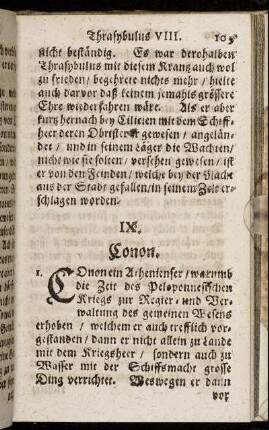 Thrasybulus VIII. 103
nicht beständig. Es war derohalben
Thrasybulus mit diesem Krantz auch wol
zu frieden / begehrete nichts mehr / hielte
auch darvor daß keinem jemahls grössere
Ehre wiederfahren wäre. Als er aber
kurtz hernach bey Cilicien mit dem Schiff-
heer deren Obrister er gewesen / angelän-
det / und in seinem Läger die Wachten /
nicht wie sie solten / versehen gewesen / ist
er von den Feinden / welche bey der Nacht
aus der Stadt gefallen / in seinem Zelt er-
schlagen worden.
IX.
Conon.
1. COnon ein Athenienser / warumb
die Zeit des Peloponnesischen
Kriegs zur Regier- und Ver-
waltung des gemeinen Wesens
erhoben / welchem er auch trefflich vor-
gestanden / dann er nicht allein zu Lande
mit dem Kriegsheer / sondern auch zu
Wasser mit der Schiffsmacht grosse
Ding verrichtet. Weswegen er dann
vor